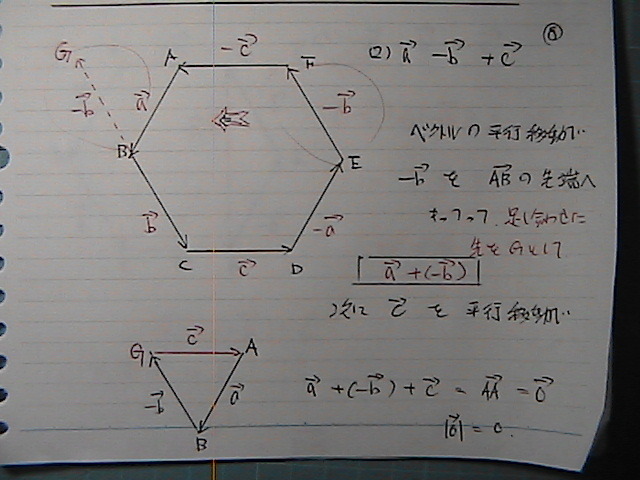 ⑧
(2) a⃗ -b⃗ + c⃗
G
A
-c⃗
F
-b⃗
a⃗
-b⃗
B
E
b⃗
-a⃗
C
c⃗
D
ベクトルの平行移動で
-b⃗ を AB⃗ の先端へ
もってって、足し合わせた
先をGとして
a⃗ +(-b⃗)
次に c⃗ を平行移動で
G
c⃗
A
-b⃗
a⃗
B
a⃗ +(-b⃗) + c⃗ = AA⃗ = 0⃗
|0⃗| = 0.